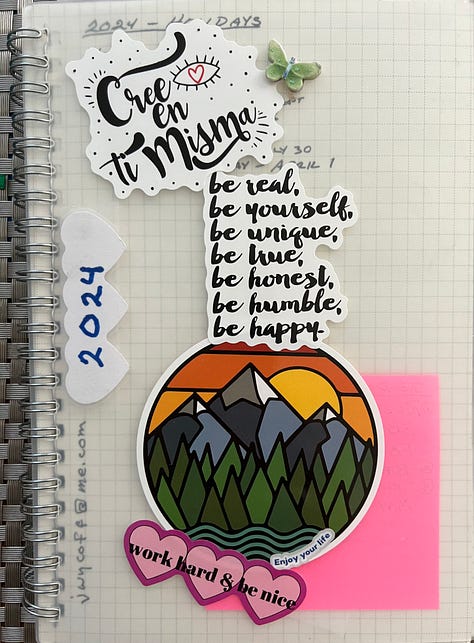 2024 - HOLIDAYS
Cree
en
ti Misma
LY 30
AY - APRIL 1
be real,
be yourself,
be unique,
be true,
be honest,
be humble,
be happy.
2024
vwycoff@me.com
Enjoy your life
work hard & be nice